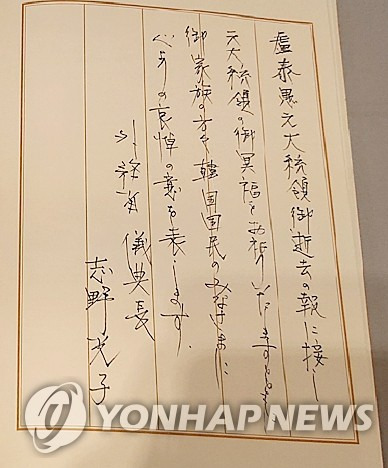 盧泰愚元大統領御逝去の報に接し
元大統領の御冥福をお祈りいたしますとともに
御家族の方々韓国国民のみなさまに
心からの哀悼の意を表します。
外務省 儀典長
志野光子
YONHAP NEWS